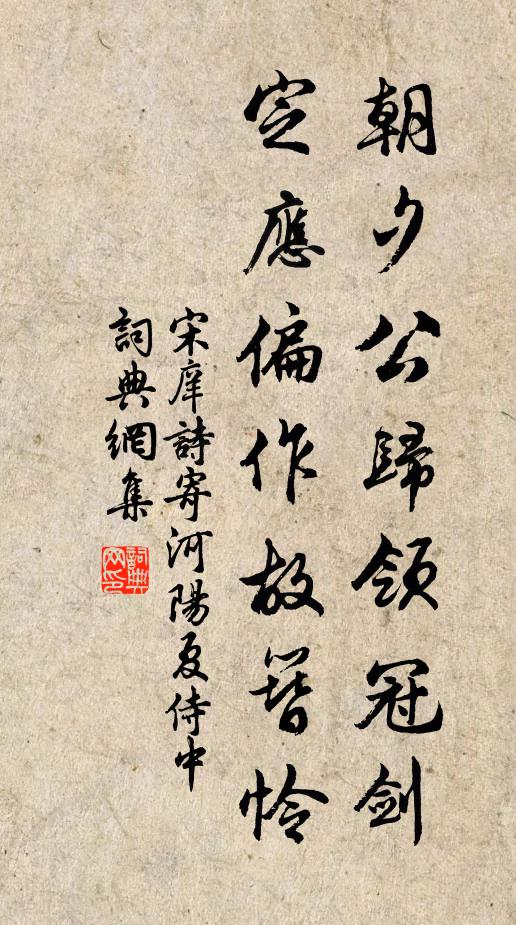 朝夕公歸領冠劍
定應偏作故簪憐
宋庠詩寄河陽夏侍中
詞典網集
詞典网印